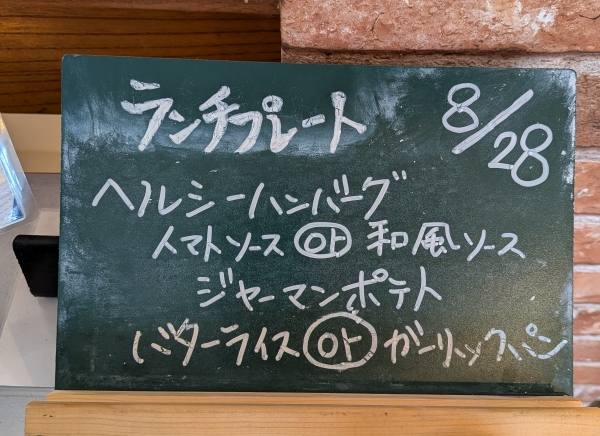 ランチプレート 8/28
ヘルシーハンバーグ
トマトソース or 和風ソース
ジャーマンポテト
バターライス or ガーリックパン